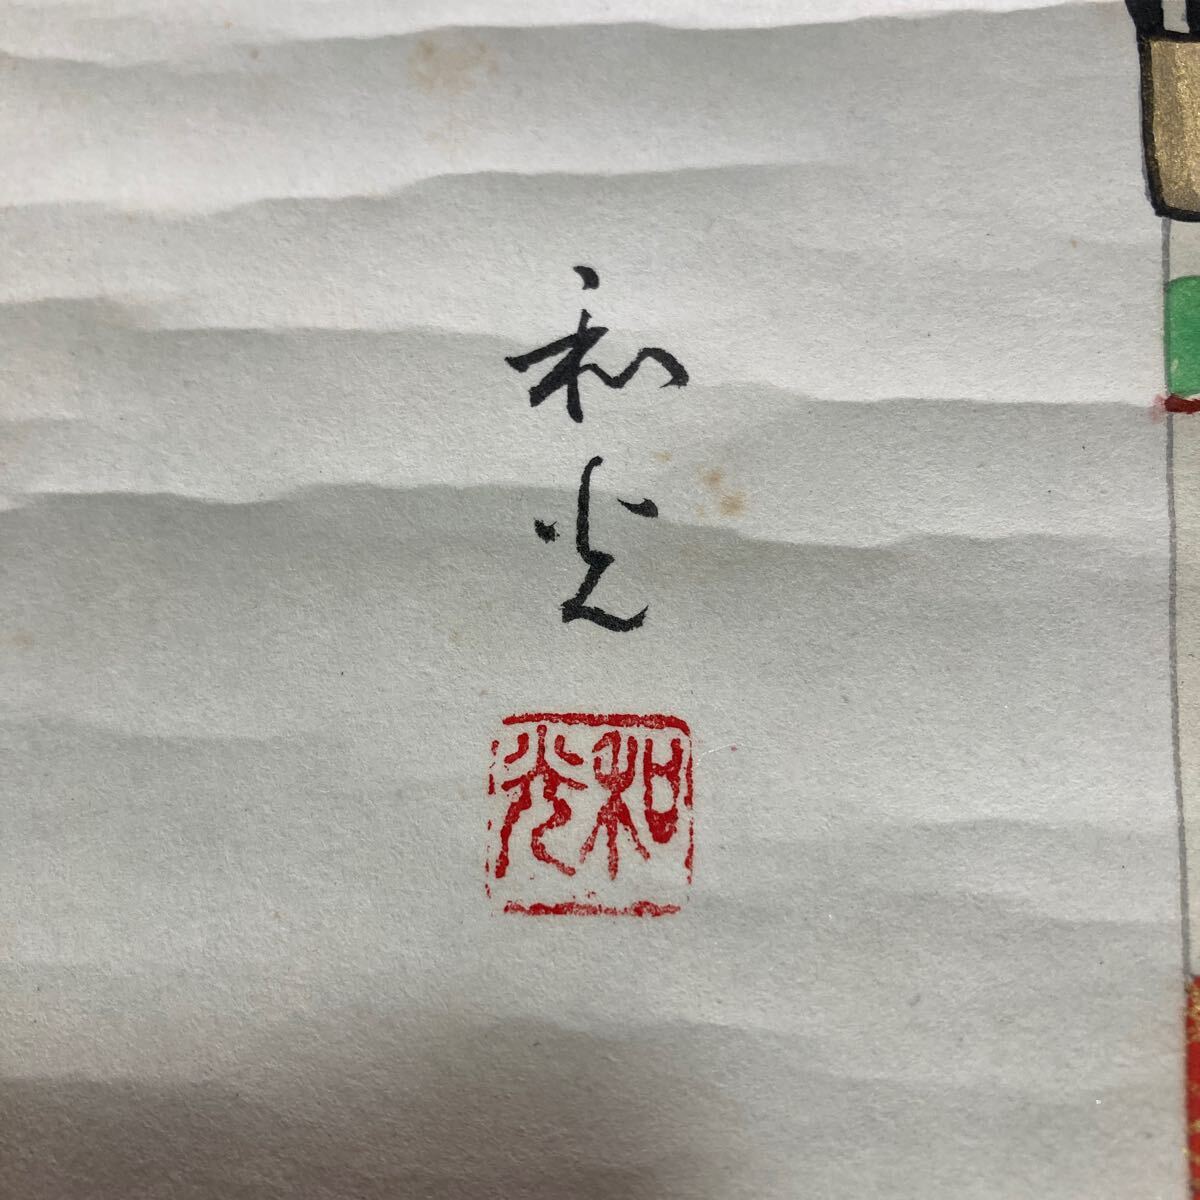 和光
和光